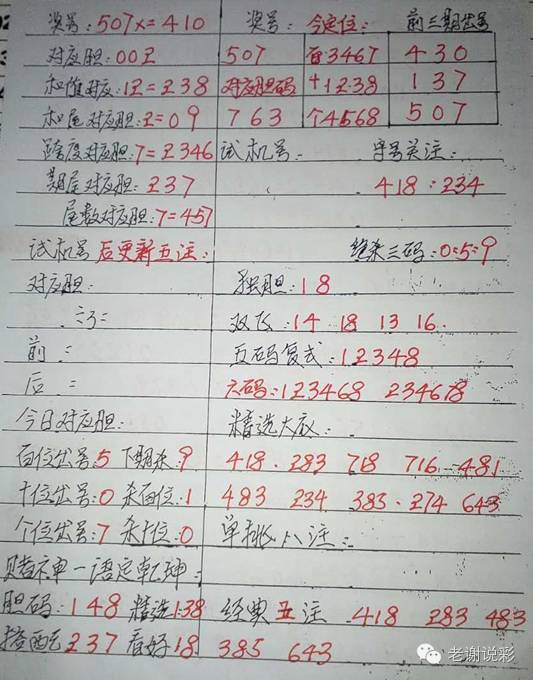 奖号:507x=410 奖号: 今定位: 前三期出号
对应胆:00码 507 百3467 430
和值对应:12=238 对应胆码 十1238 137
和尾对应胆:2=09 763 个4568 507
跨度对应胆:7=2346 试机号: 字号关注:
期尾对应胆:237 418:234
尾数对应胆:7=457
试机号后更新五注: 绝杀三码:0:5:9
对应胆: 独胆:18
双飞:14 18 13 16.
前: 五码复式:12348
后: 六码:123468 234678
今日对应胆: 精选大底:
百位出号:5 下期杀:9 418. 283 718 716 481
十位出号:0 杀百位:1 483 234 383. 274 643
个位出号:7 杀十位:0 单挑八注:
赌神一语定乾坤:
胆码:148 精选138 经典五注 418 283 483
搭配237 看好18 385 643
老谢说彩